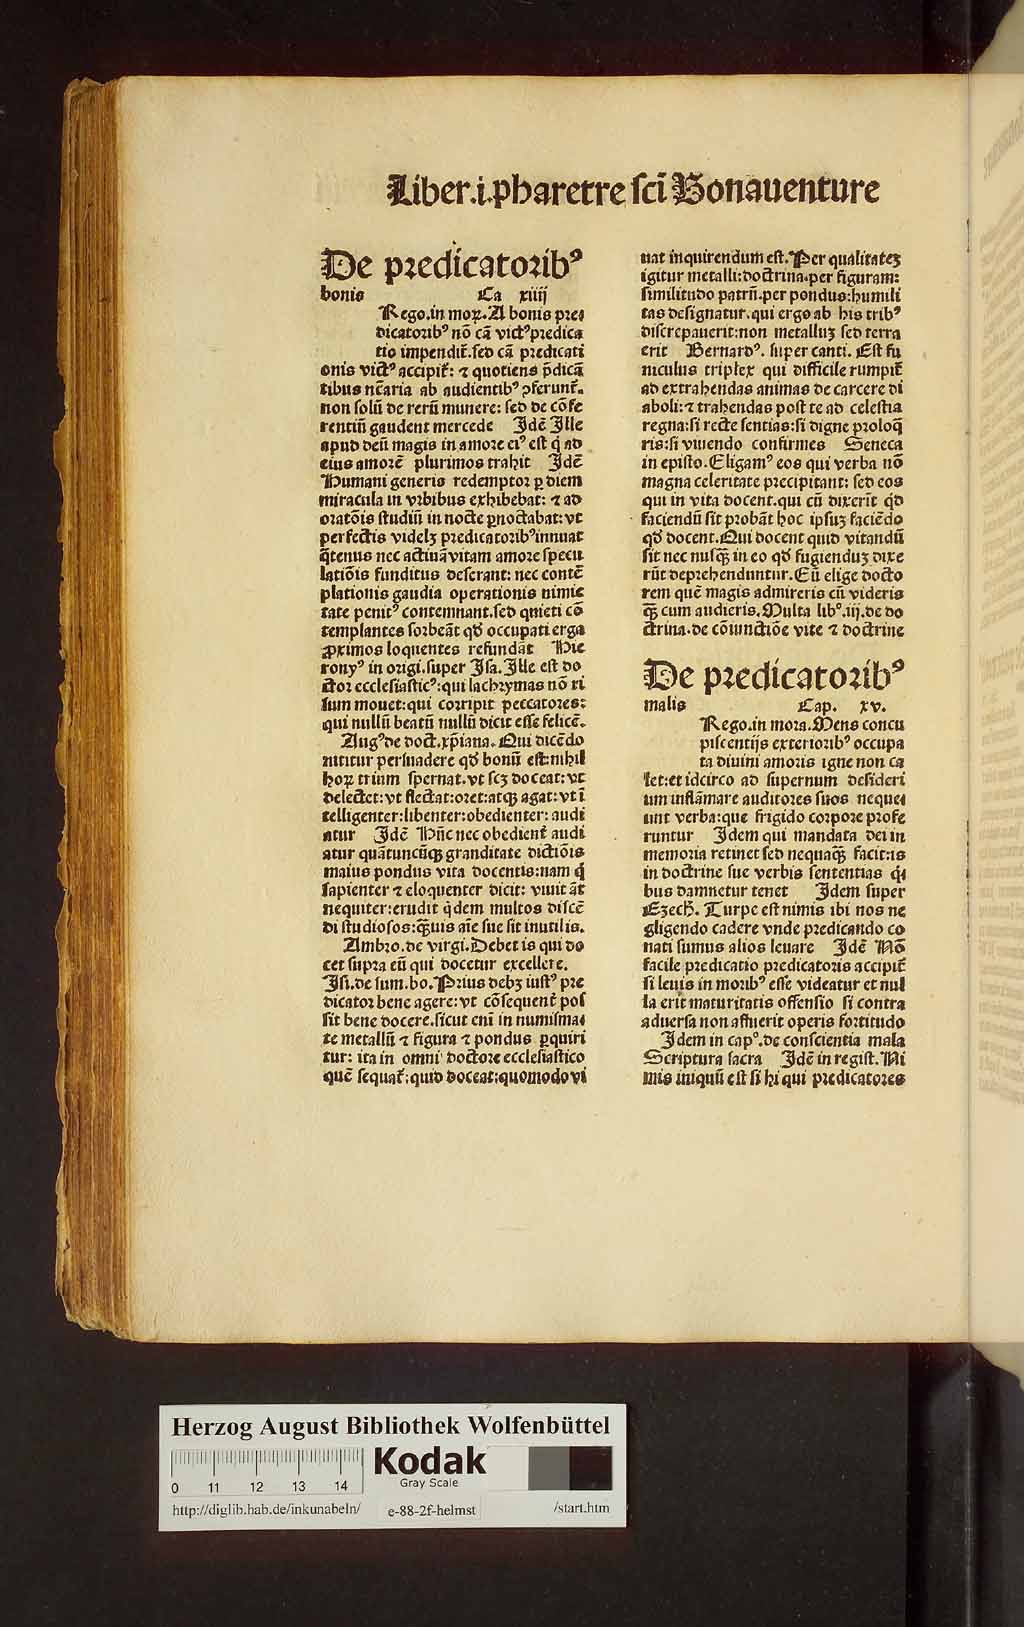 Liber.i.pharetre sci̅ Bonauenture
De predicatoribꝰ
bonis Ca xiiij
Rego.in moꝝ.A bonis pre⸗
dicatoribꝰ nō cā victꝰ predica
tio impendit̄.sed cā predicati
onis victꝰ accipit̄: ⁊ quotiens p̄dicā
tibus nc̄aria ab audientibꝰ ꝓferunt̄.
non solū de rerū munere: sed de cōfe
rentiū gaudent mercede Idē Ille
apud deū magis in amore eiꝰ est q̇ ad
eius amorē plurimos trahit Idē
Humani generis redemptor ꝑ diem
miracula in vrbibus exhibebat: ⁊ ad
oratōis studiū in nocte ꝑnoctabat: vt
perfectis videlꝫ predicatoribꝰ innuat
q̄tenus nec actiuā vitam amore specu
latiōis funditus deserant: nec contē
plationis gaudia operationis nimie
tate penitꝰ contemnant.sed quieti cō
templantes sorbeāt qd̓ occupati erga
ꝓximos loquentes refundāt Hie
ronyꝰ in origi.super Isa.Ille est do
ctor ecclesiasticꝰ:qui lachrymas nō ri
sum mouet:qui corripit peccatores:
qui nullū beatū nullū dicit esse felicē.
Augꝰ de doct.xp̄iana.Qui dicēdo
nititur persuadere qd̓ bonū est:nihil
hoꝝ trium spernat.vt scꝫ doceat: vt
delectet:vt flectat:oret:atqꝫ agat: vt ī
telligenter:libenter:obedienter: audi
atur Idē Hūc nec obedient̄ audi
atur quātuncūqꝫ granditate dictiōis
maius pondus vita docentis:nam q̇
sapienter ⁊ eloquenter dicit: viuit āt
nequiter:erudit q̇dem multos discē
di studiosos:q̄uis aīe sue sit inutilis.
Ambro.de virgi.Debet is qui do
cet supra eū qui docetur excellere.
Isi.de sum.bo.Prius debꝫ iustꝰ pre
dicator bene agere: vt cōsequent̄ pos
sit bene docere.sicut eni in numisma⸗
te metallū ⁊ figura ⁊ pondus ꝑquiri
tur: ita in omni doctore ecclesiastico
quē sequat̄:quid doceat:quomodo vi
uat inquirendum est.Per qualitateꝫ
igitur metalli:doctrina.per figuram:
similitudo patrū.per pondus:humili
tas designatur.qui ergo ab his tribꝰ
discrepauerit:non metalluꝫ sed terra
erit Bernardꝰ. super canti. Est fu
niculus triplex qui difficile rumpit̄
ad extrahendas animas de carcere di
aboli:⁊ trahendas post te ad celestia
regna:si recte sentias:si digne proloq̄
ris:si viuendo confirmes Seneca
in episto.Eligamꝰ eos qui verba nō
magna celeritate precipitant: sed eos
qui in vita docent.qui cū dixerīt qd̓
faciendū sit probāt hoc ipsuꝫ faciēdo
qd̓ docent.Qui docent quid vitandū
sit nec nusq̄ in eo qd̓ fugienduꝫ dixe
rūt deprehenduntur.Eū elige docto
rem quē magis admireris cū videris
q̄ cum audieris.Multa libꝰ.iij.de do
ctrina.de cōiunctiōe vite ⁊ doctrine
De predicatoribꝰ
malis Cap. xv.
Rego.in mora.Mens concu
piscentijs exterioribꝰ occupa
ta diuini amoris igne non ca
let:et idcirco ad supernum desideri
um inflāmare auditores suos neque⸗
unt verba:que frigido corpore profe
runtur Idem qui mandata dei in
memoria retinet sed nequaq̄ facit:is
in doctrine sue verbis sententias q̇⸗
bus damnetur tenet Idem super
Ezech̓. Turpe est nimis ibi nos ne
gligendo cadere vnde predicando co
nati sumus alios leuare Idē Nō
facile predicatio predicatoris accipit̄
si leuis in moribꝰ esse videatur et nul
la erit maturitatis offensio si contra
aduersa non affuerit operis fortitudo
Idem in capꝰ.de conscientia mala
Scriptura sacra Idē in regist.Ni
mis iniquū est si hi qui predicatores
Herzog August Bibliothek Wolfenbüttel
0 11 12 13 14
Kodak
Gray Scale
http://diglib.hab.de/inkunabeln/ e-88-2f-helmst /start.htm